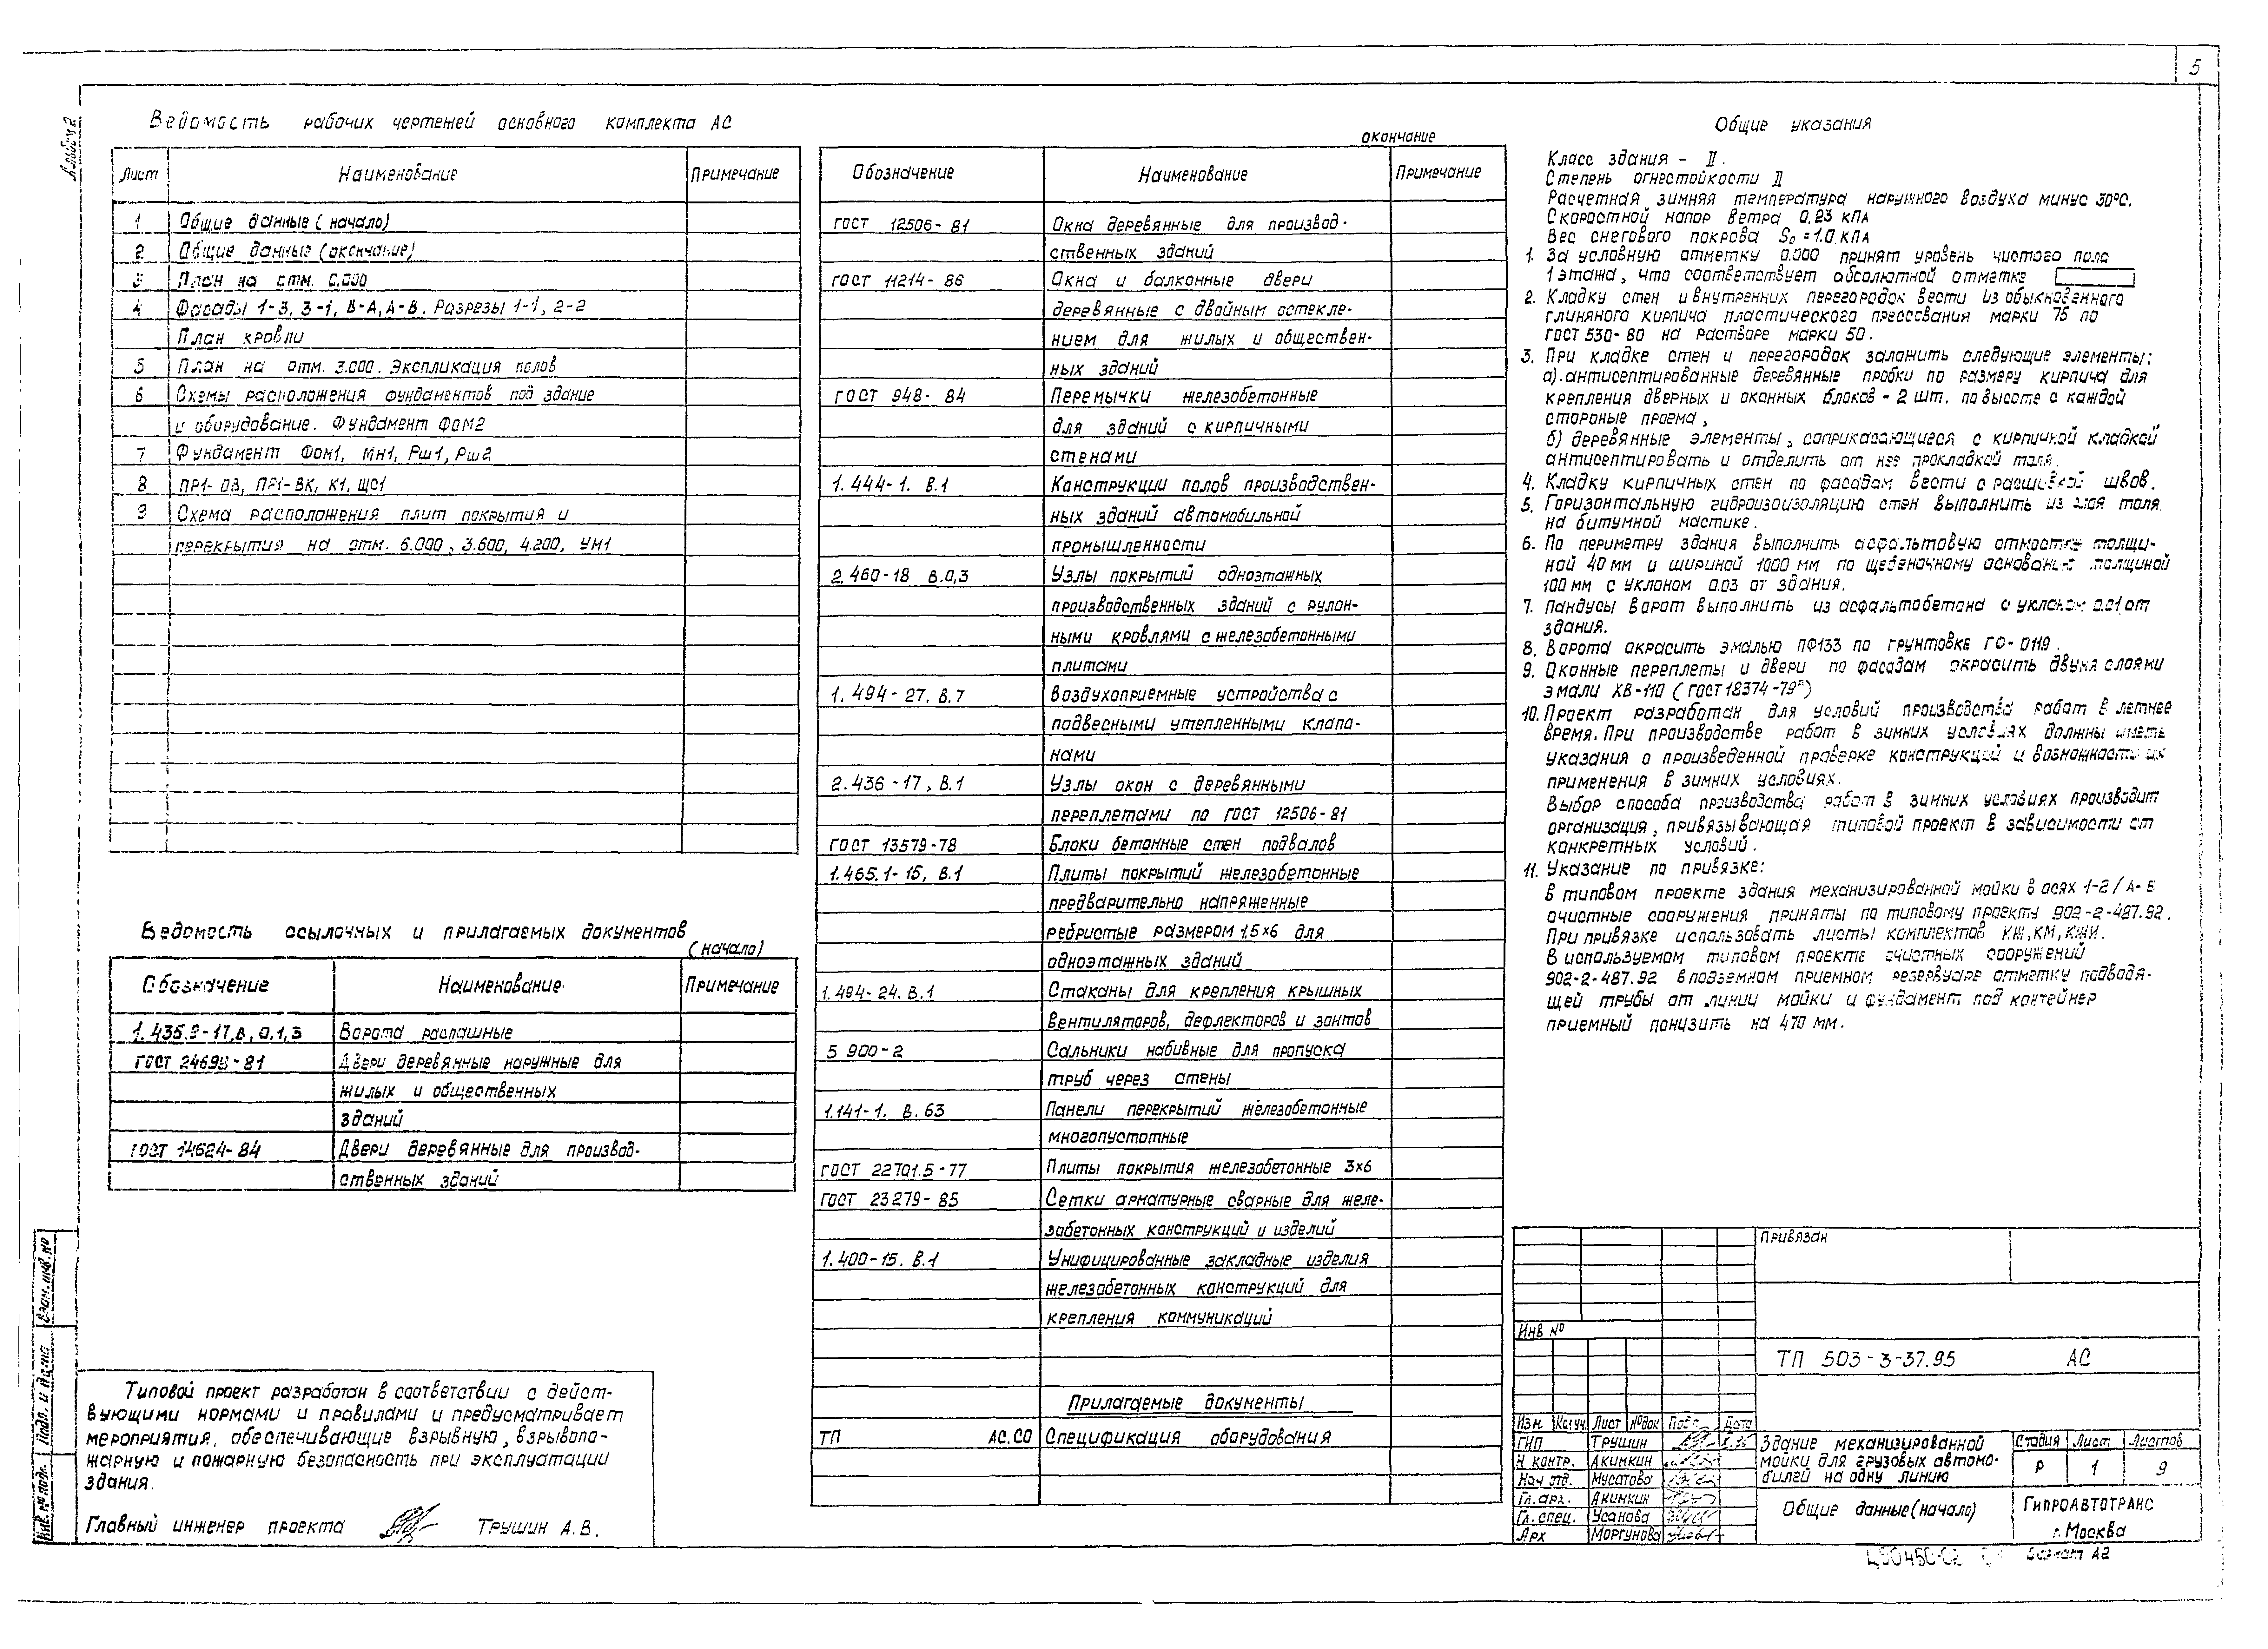 5
Альбом 2
Ведомость рабочих чертежей основного комплекта АС
Лист Наименование Примечание
1 Общие данные (начало)
2 Общие данные (окончание)
3 План на отм. 0.000
4 Фасады 1-3, 3-1, В-А, А-В. Разрезы 1-1, 2-2
План кровли
5 План на отм. 3.000. Экспликация полов
6 Схемы расположения фундаментов под здание
и оборудование. Фундамент Фом2
7 Фундамент Фом1, Мн1, Рш1, Рш2
8 ПР1-ОВ, ПР1-ВК, К1, ЩС1
9 Схема расположения плит покрытия и
перекрытия на отм. 6.000, 3.600, 4.200, УМ1
Ведомость ссылочных и прилагаемых документов
(начало)
Обозначение Наименование Примечание
1.435.9-17, в, 0,1,3 Ворота распашные
ГОСТ 24698-81 Двери деревянные наружные для
жилых и общественных
зданий
ГОСТ 14624-84 Двери деревянные для производ-
ственных зданий
Типовой проект разработан в соответствии с дейст-
вующими нормами и правилами и предусматривает
мероприятия, обеспечивающие взрывную, взрывопо-
жарную и пожарную безопасность при эксплуатации
здания.
Главный инженер проекта Трушин А.В.
окончание
Обозначение Наименование Примечание
ГОСТ 12506-81 Окна деревянные для производ-
ственных зданий
ГОСТ 11214-86 Окна и балконные двери
деревянные с двойным остекле-
нием для жилых и обществен-
ных зданий
ГОСТ 948-84 Перемычки железобетонные
для зданий с кирпичными
стенами
1.444-1. В.1 Конструкции полов производствен-
ных зданий автомобильной
промышленности
2.460-18 В.0,3 Узлы покрытий одноэтажных
производственных зданий с рулон-
ными кровлями с железобетонными
плитами
1.494-27. В.7 Воздухоприемные устройства с
подвесными утепленными клапа-
нами
2.436-17, В.1 Узлы окон с деревянными
переплетами по ГОСТ 12506-81
ГОСТ 13579-78 Блоки бетонные стен подвалов
1.465.1-15, В.1 Плиты покрытий железобетонные
предварительно напряженные
ребристые размером 1.5×6 для
одноэтажных зданий
1.494-24. В.1 Стаканы для крепления крышных
вентиляторов, дефлекторов и зонтов
5 900-2 Сальники набивные для пропуска
труб через стены
1.141-1. В.63 Панели перекрытий железобетонные
многопустотные
ГОСТ 22701.5-77 Плиты покрытия железобетонные 3×6
ГОСТ 23279-85 Сетки арматурные сварные для желе-
забетонных конструкций и изделий
1.400-15. В.1 Унифицированные закладные изделия
железобетонных конструкций для
крепления коммуникаций
Прилагаемые документы
ТП АС.СО Спецификация оборудования
Общие указания
Класс здания - II.
Степень огнестойкости II
Расчетная зимняя температура наружного воздуха минус 30°С.
Скоростной напор ветра 0,23 кПа
Вес снегового покрова S₀=1.0 кПа
1. За условную отметку 0.000 принят уровень чистого пола
1 этажа, что соответствует абсолютной отметке
2. Кладку стен и внутренних перегородок вести из обыкновенного
глиняного кирпича пластического прессования марки 75 по
ГОСТ 530-80 на растворе марки 50.
3. При кладке стен и перегородок заложить следующие элементы:
а). антисептированные деревянные пробки по размеру кирпича для
крепления дверных и оконных блоков - 2 шт. по высоте с каждой
стороные проема,
б) деревянные элементы, соприкасающиеся с кирпичной кладкой
антисептировать и отделить от нее прокладкой толя.
4. Кладку кирпичных стен по фасадам вести с расшивкой швов.
5. Горизонтальную гидроизоляцию стен выполнить из слоя толя
на битумной мастике.
6. По периметру здания выполнить асфальтовую отмостку толщи-
ной 40 мм и шириной 1000 мм по щебеночному основанию толщиной
100 мм с уклоном 0.03 от здания.
7. Пандусы ворот выполнить из асфальтобетона с уклоном 0.01 от
здания.
8. Ворота окрасить эмалью ПФ133 по грунтовке ГФ-0119.
9. Оконные переплеты и двери по фасадам окрасить двумя слоями
эмали ХВ-110 (ГОСТ 18374-79*)
10. Проект разработан для условий производства работ в летнее
время. При производстве работ в зимних условиях должны иметь
указания о произведенной проверке конструкций и возможности их
применения в зимних условиях.
Выбор способа производства работ в зимних условиях производит
организация, привязывающая типовой проект в зависимости от
конкретных условий.
11. Указание по привязке:
В типовом проекте здания механизированной мойки в осях 1-2/А-Б
очистные сооружения приняты по типовому проекту 902-2-487.92.
При привязке использовать листы комплектов КЖ, КМ, КЖИ.
В используемом типовом проекте очистных сооружений
902-2-487.92 в подземном приемном резервуаре отметку подводя-
щей трубы от линии мойки и фундамент под контейнер
приемный понизить на 470 мм.
Привязан
Инв №
ТП 503-3-37.95 АС
Изм. Кол.уч. Лист №док Подп. Дата
ГИП Трушин
Н контр. Акимкин
Нач отд. Мусатова
Гл.арх. Акимкин
Гл.спец. Усанова
Арх Моргунова
Здание механизированной
мойки для грузовых автомо-
билей на одну линию
Стадия Лист Листов
Р 1 9
Общие данные (начало)
Гипроавтотранс
г. Москва
Формат А2
Взам. инв. №
Подп. и дата
Инв. № подл.